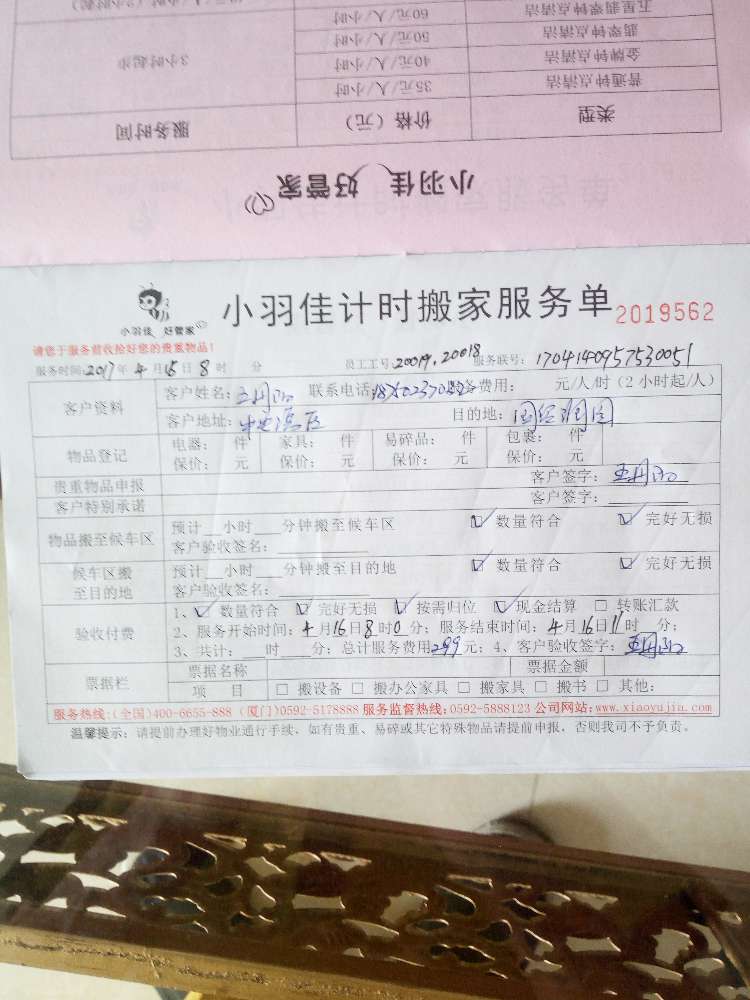 五星翡翠钟点清洁 60元/人/小时
翡翠钟点清洁 50元/人/小时
金牌钟点清洁 40元/人/小时 3小时起步
普通钟点清洁 35元/人/小时
类型 价格（元） 服务时间
小羽佳 好管家
小羽佳 好管家
小羽佳计时搬家服务单 2019562
请您于服务前收拾好您的贵重物品！
服务时间:2017年4月16日8时 分 员工工号:20019.20018 服务联号:1704140957530051
客户资料 客户姓名: 联系电话: 服务费用: 元/人/时（2小时起/人）
客户地址: 目的地:
物品登记 电器: 件 家具: 件 易碎品: 件 包裹: 件
保价: 元 保价: 元 保价: 元 保价: 元
贵重物品申报 客户签字:
客户特别承诺 客户签字:
物品搬至候车区 预计__小时__分钟搬至候车区 ☑ 数量符合 ☑ 完好无损
客户验收签名:
候车区搬至目的地 预计__小时__分钟搬至目的地 ☑ 数量符合 ☑ 完好无损
客户验收签名:
验收付费 1、☑ 数量符合 ☑ 完好无损 ☑ 按需归位 ☑ 现金结算 □ 转账汇款
2、服务开始时间:4月16日8时0分; 服务结束时间:4月16日11时 分;
3、共计:__时 分; 总计服务费用299元; 4、客户验收签字:
票据栏 票据名称 票据金额
项 目 □ 搬设备 □ 搬办公家具 □ 搬家具 □ 搬书 □ 其他:
服务热线:(全国)400-6655-888 (厦门)0592-5178888 服务监督热线:0592-5888123 公司网站:www.xiaoyujia.com
温馨提示: 请提前办理好物业通行手续，如有贵重、易碎或其它特殊物品请提前申报，否则我司不予负责。